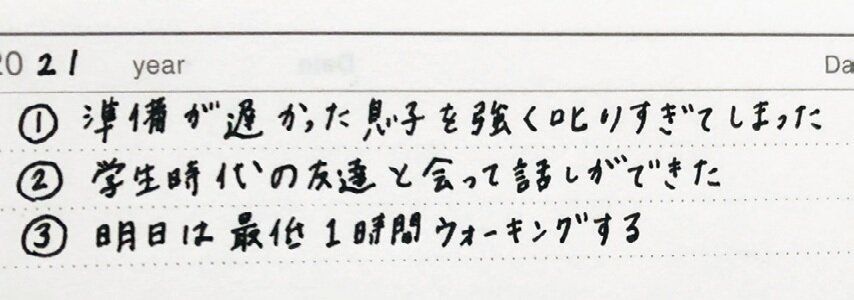 2021 year Da
① 準備が遅かった息子を強く叱りすぎてしまった
② 学生時代の友達と会って話しができた
③ 明日は最低1時間ウォーキングする